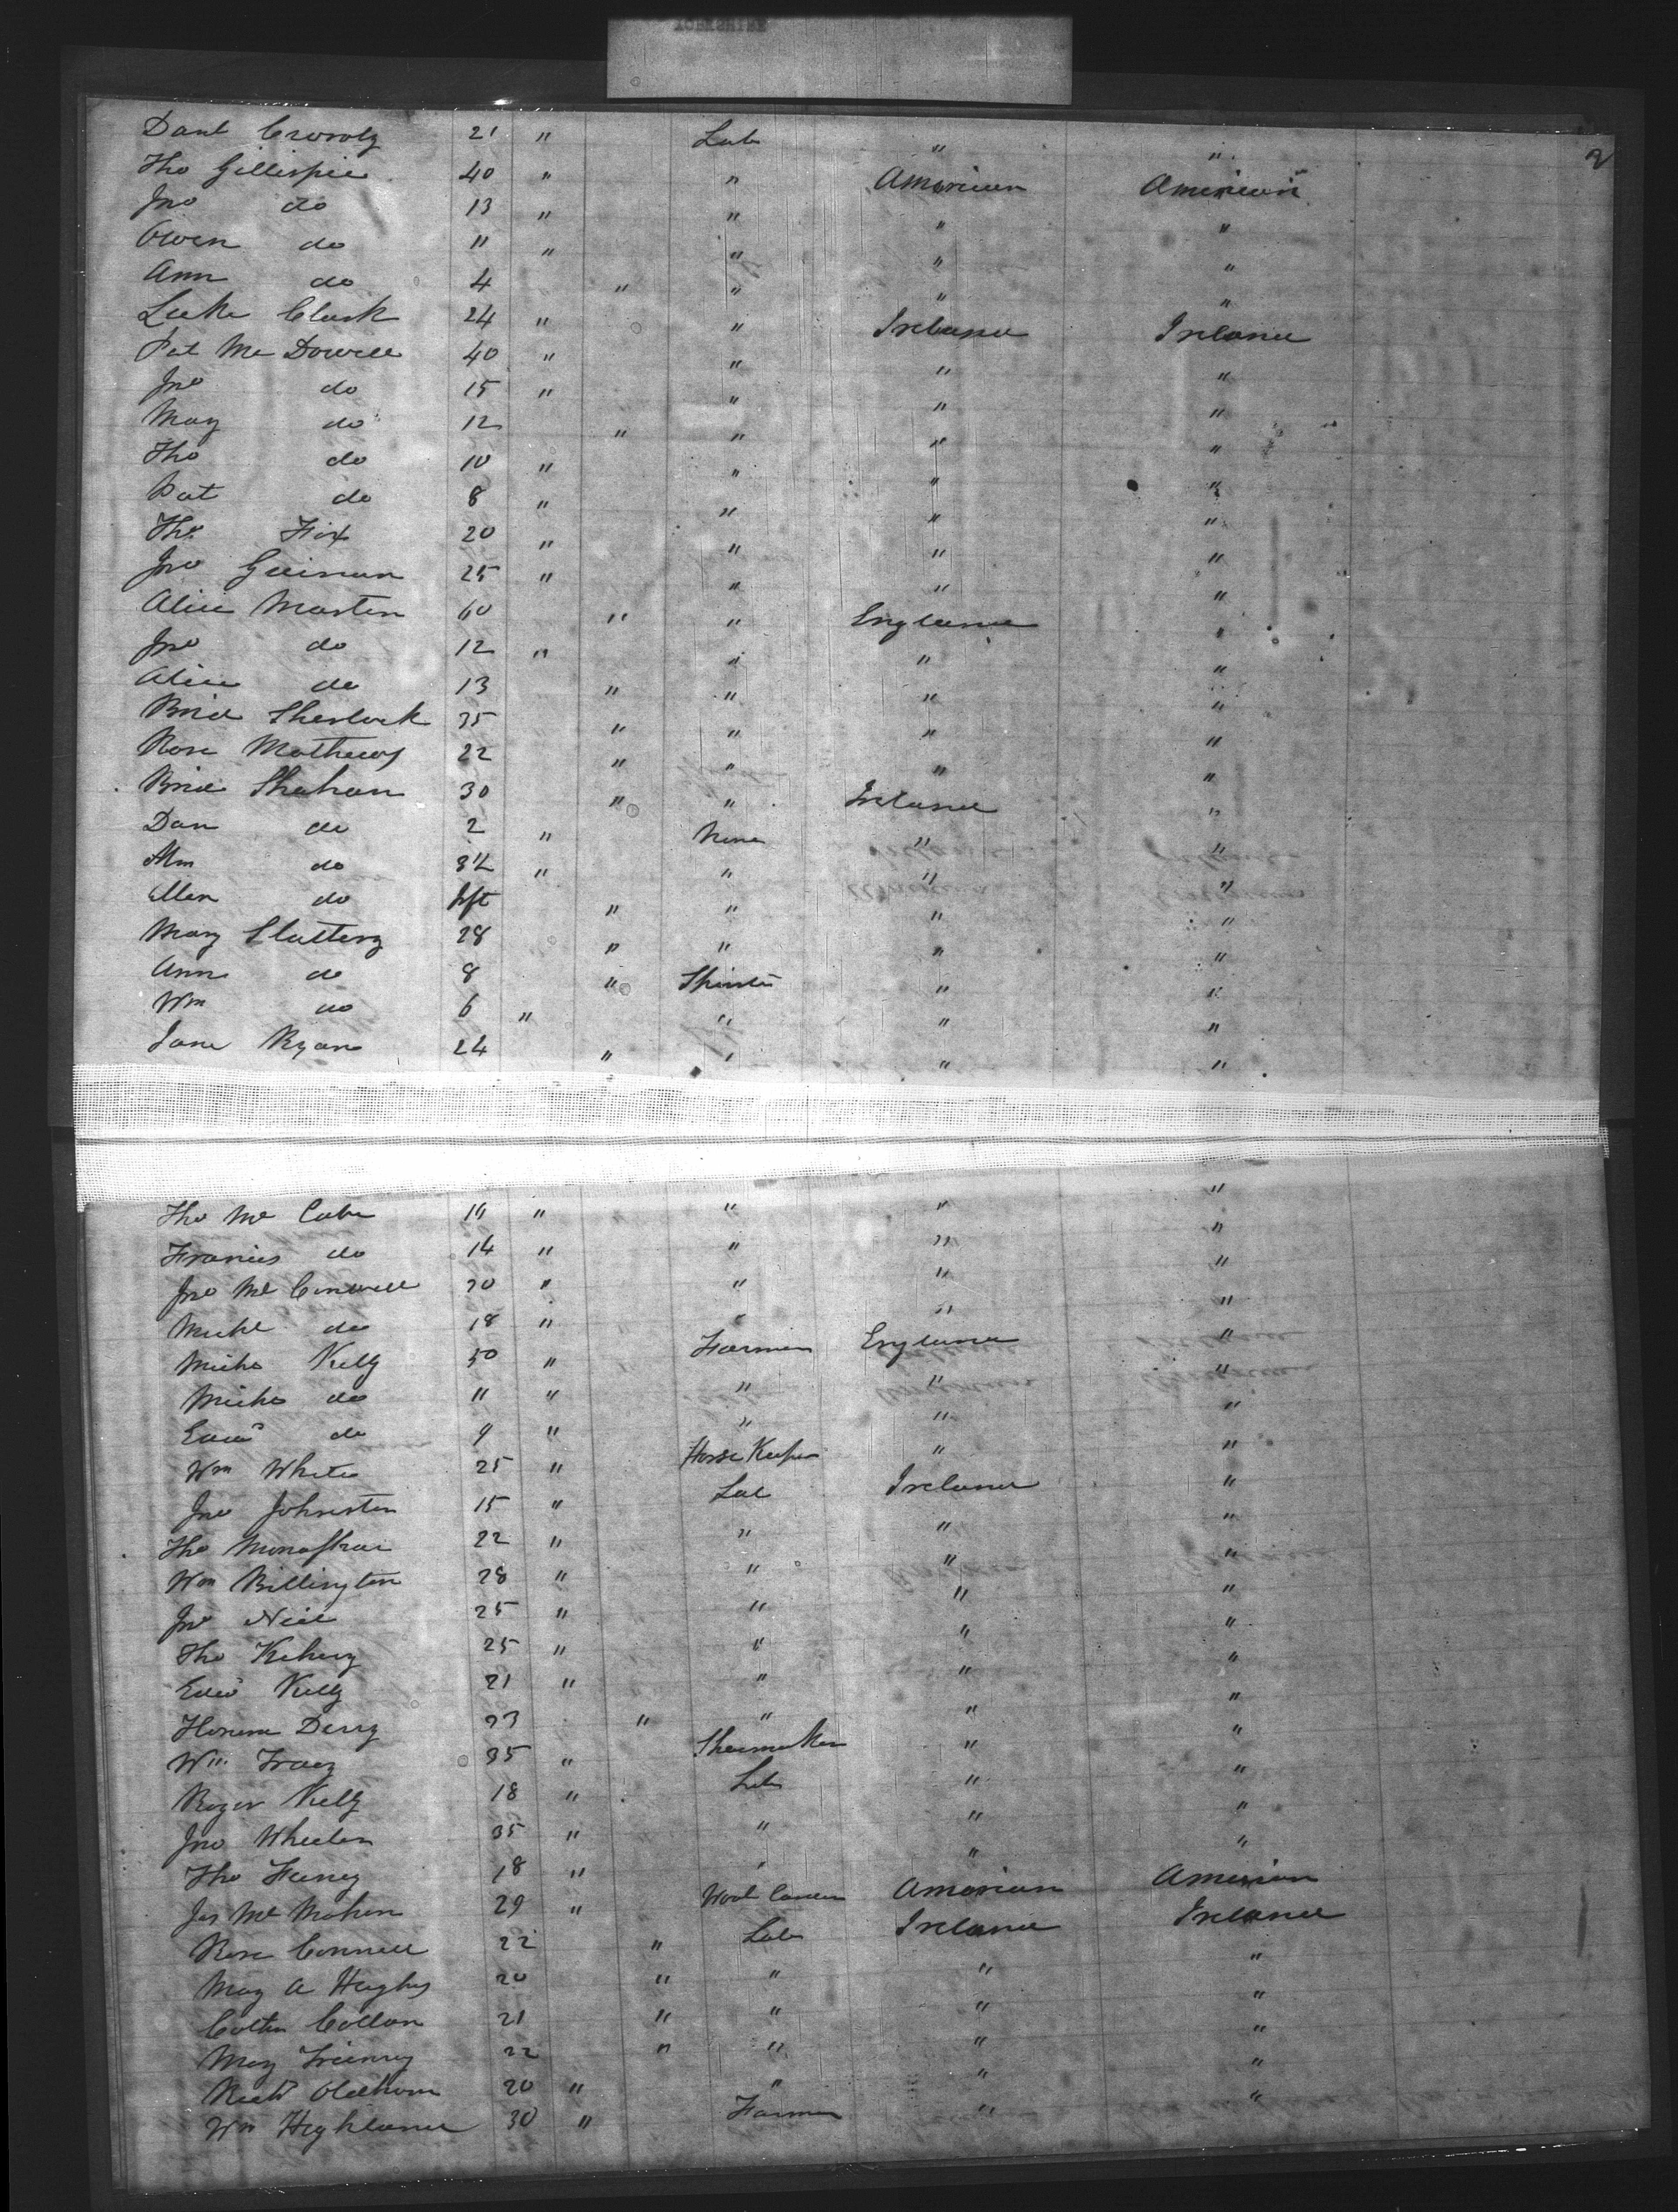 YORKSHIRE
2
Danl Crowly 21 " Lab " "
Tho Gillespie 40 " " American American
Jno do 13 " " " "
Owen do 11 " " " "
Ann do 4 " " " "
Luke Clark 24 " " Ireland Ireland
Pat McDowell 40 " " " "
Jno do 15 " " " "
Mary do 12 " " " "
Tho do 10 " " " "
Pat do 8 " " " "
Tho Fox 20 " " " "
Jno Guinan 25 " " " "
Alice Martin 60 " " England "
Jno do 12 " " " "
Alice do 13 " " " "
Brid Sherlock 35 " " " "
Rose Mathews 22 " " " "
Brid Shahan 30 " " Ireland "
Dan do 2 " None " "
Wm do 3½ " " " "
Ellen do Inft " " " "
Mary Slattery 28 " " " "
Ann do 8 " Spinster " "
Wm do 6 " " " "
Jane Ryan 24 " " " "
Tho McCabe " " " "
Francis do 14 " " " "
Jno McConnell 20 " " " "
Michl do 18 " " " "
Micho Kelly 50 " Farmer England "
Micho do 11 " " " "
Edwd do 9 " " " "
Wm White 25 " Horse Keeper " "
Jno Johnston 15 " Lab Ireland "
Tho 22 " " " "
Wm Billington 28 " " " "
Jno Neil 25 " " " "
Tho 25 " " " "
Edwd Kelly 21 " " " "
Honora Derry 23 " " " "
Wm Tracy 35 " Shoemaker " "
Roger Kelly 18 " Lab " "
Jno Wheelan 35 " " " "
Tho Feeney 18 " " " "
Jas McMahon 29 " Wool American American
Rose Connell 22 " Lab Ireland Ireland
Mary A Hughes 20 " " " "
21 " " " "
Mary 22 " " " "
Richd Oldham 20 " " " "
Wm Highland 30 " Farmer " "